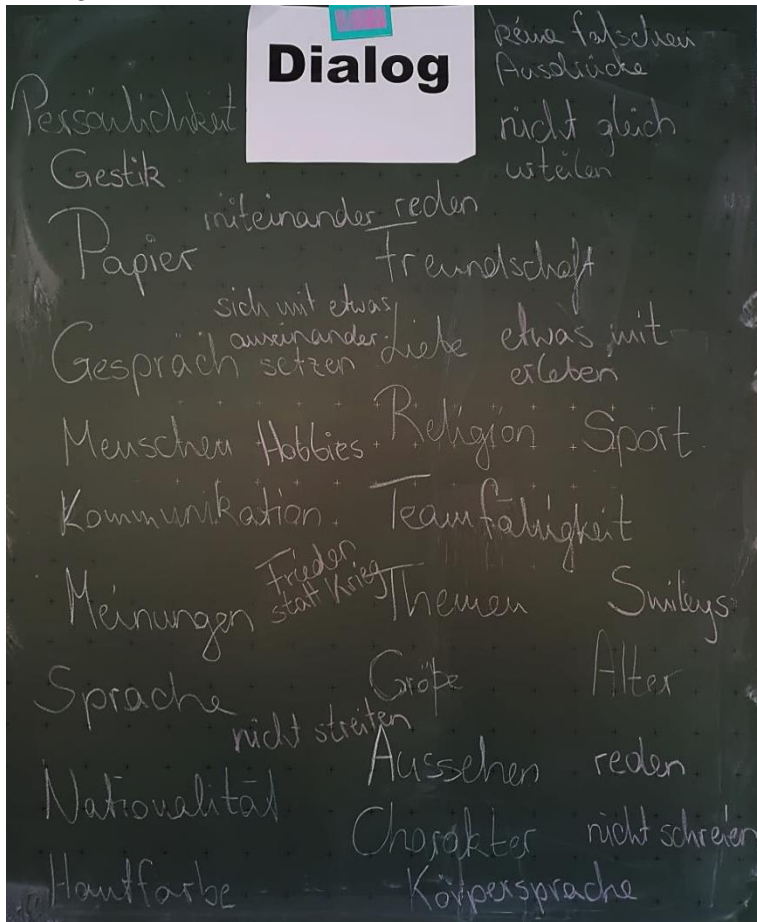 Dialog
keine falschen
Ausdrücke
Persönlichkeit
nicht gleich
urteilen
Gestik
miteinander reden
Papier
Freundschaft
sich mit etwas
auseinander-
setzen
Gespräch
Liebe
etwas mit-
erleben
Menschen
Hobbies
Religion
Sport
Kommunikation
Teamfähigkeit
Frieden
statt Krieg
Meinungen
Themen
Smileys
Sprache
Größe
Alter
nicht streiten
Aussehen
reden
Nationalität
Charakter
nicht schreien
Hautfarbe
Körpersprache